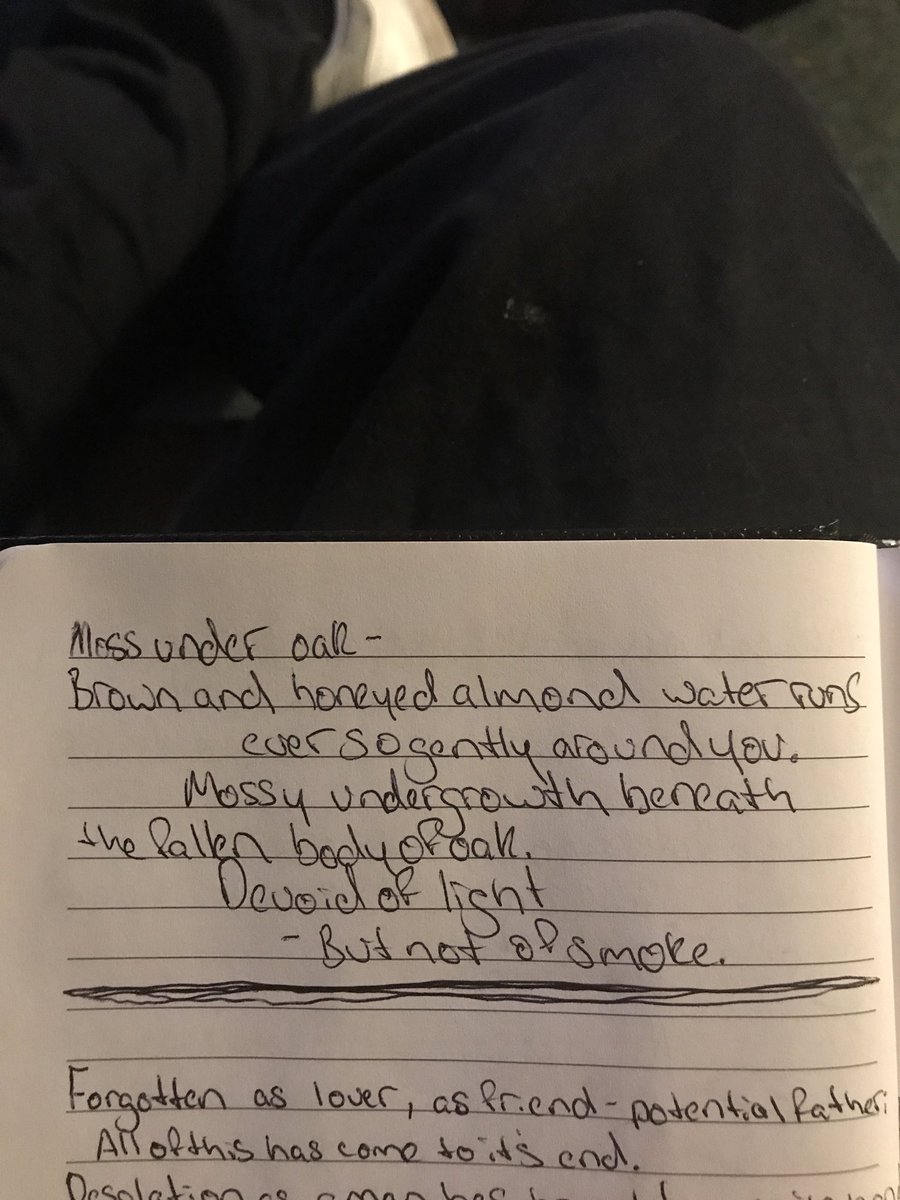 Moss under oak -
Brown and honeyed almond water runs
ever so gently around you.
Mossy undergrowth beneath
the fallen body of oak.
Devoid of light
- But not of smoke.
Forgotten as lover, as friend - potential father;
All of this has come to it's end.
Desolation as a man has